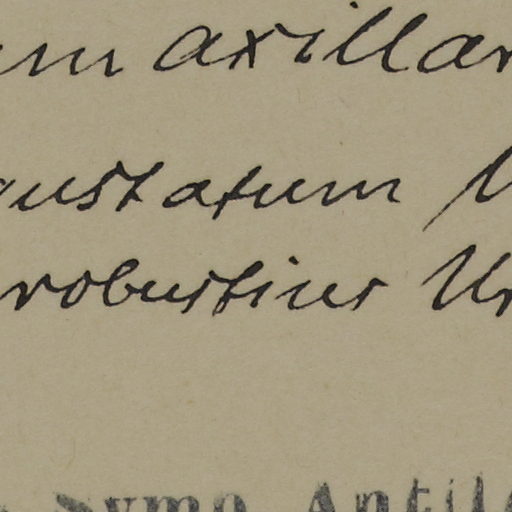 um axillar
gustatum U
robustius Ur
Symo. Antill